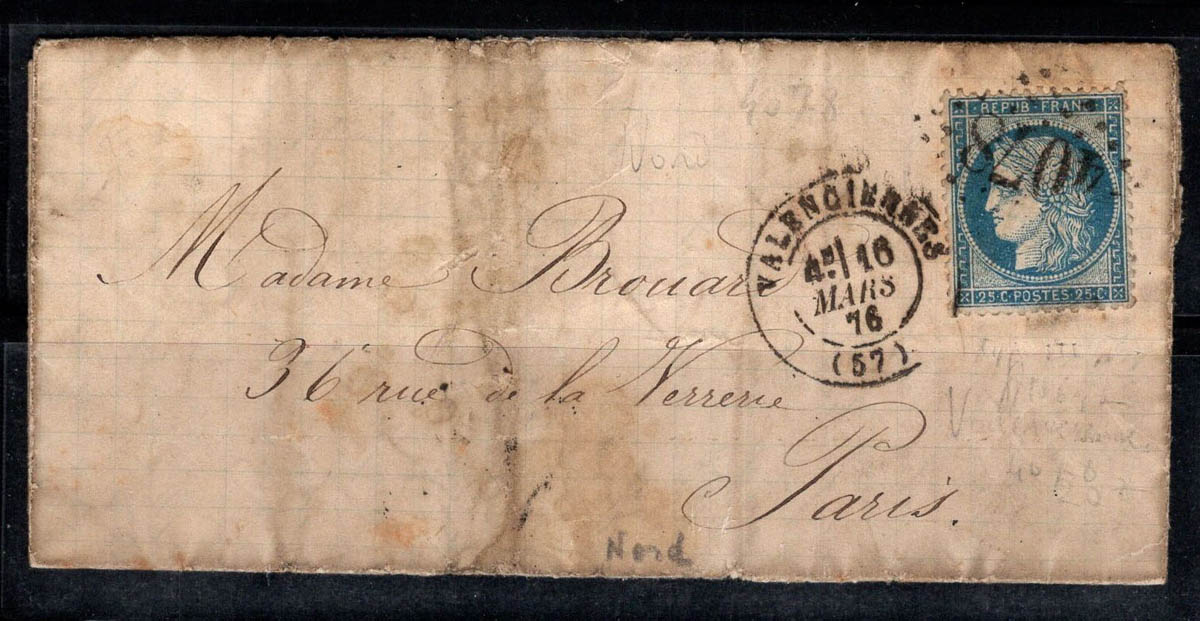 4078
Nord
REPUB · FRANC
4078
25·C·POSTES·25·C
VALENCIENNES
16
MARS
76
(57)
Madame Brouard
36 rue de la Verrerie
Paris.
Nord